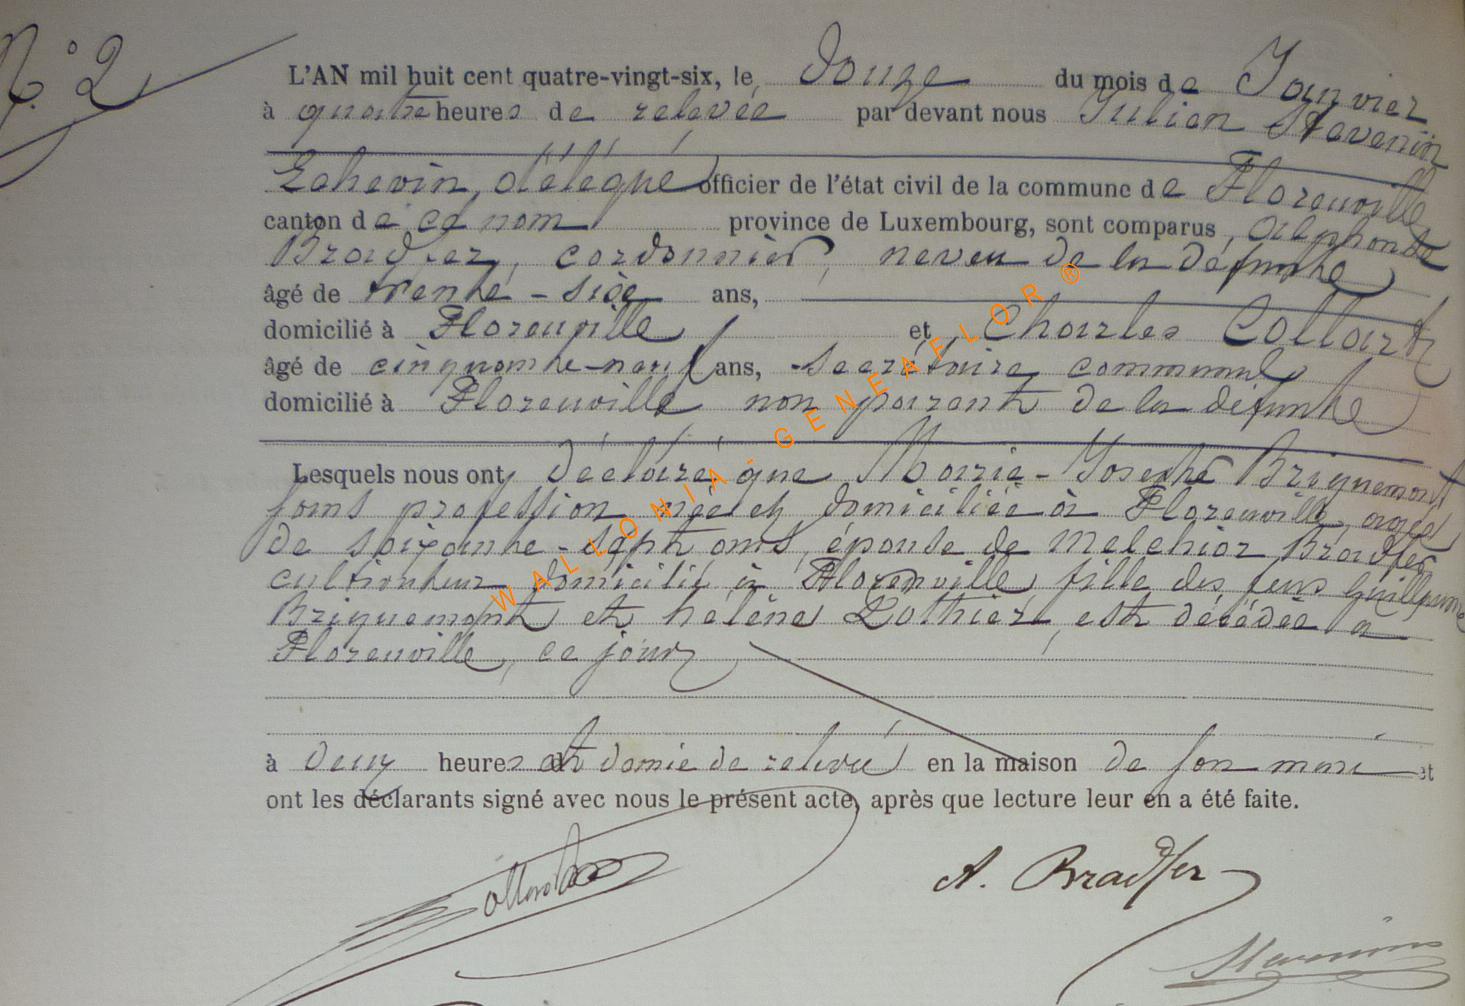 N° 2
L'AN mil huit cent quatre-vingt-six, le douze du mois de Janvier
à quatre heures de relevée par devant nous Julien Stevenin
Echevin délégué officier de l'état civil de la commune de Florenville
canton de ce nom province de Luxembourg, sont comparus Alphonse
Bradfer, cordonnier, neveu de la défunte
âgé de trente-six ans,
domicilié à Florenville et Charles Collart
âgé de cinquante-neuf ans, secrétaire communal
domicilié à Florenville non parent de la défunte
Lesquels nous ont déclaré que Marie-Josephe Briquemont
sans profession née et domiciliée à Florenville, agée
de soixante-sept ans, épouse de Melchior Bradfer
cultivateur domicilié à Florenville fille des feus Guillaume
Briquemont et hélène Lothier, est décédée a
Florenville, ce jour
à deux heures et demie de relevée en la maison de son mari et
ont les déclarants signé avec nous le présent acte, après que lecture leur en a été faite.
Collart A. Bradfer
Stevenin
WALLONIA-GENEAFLOR®